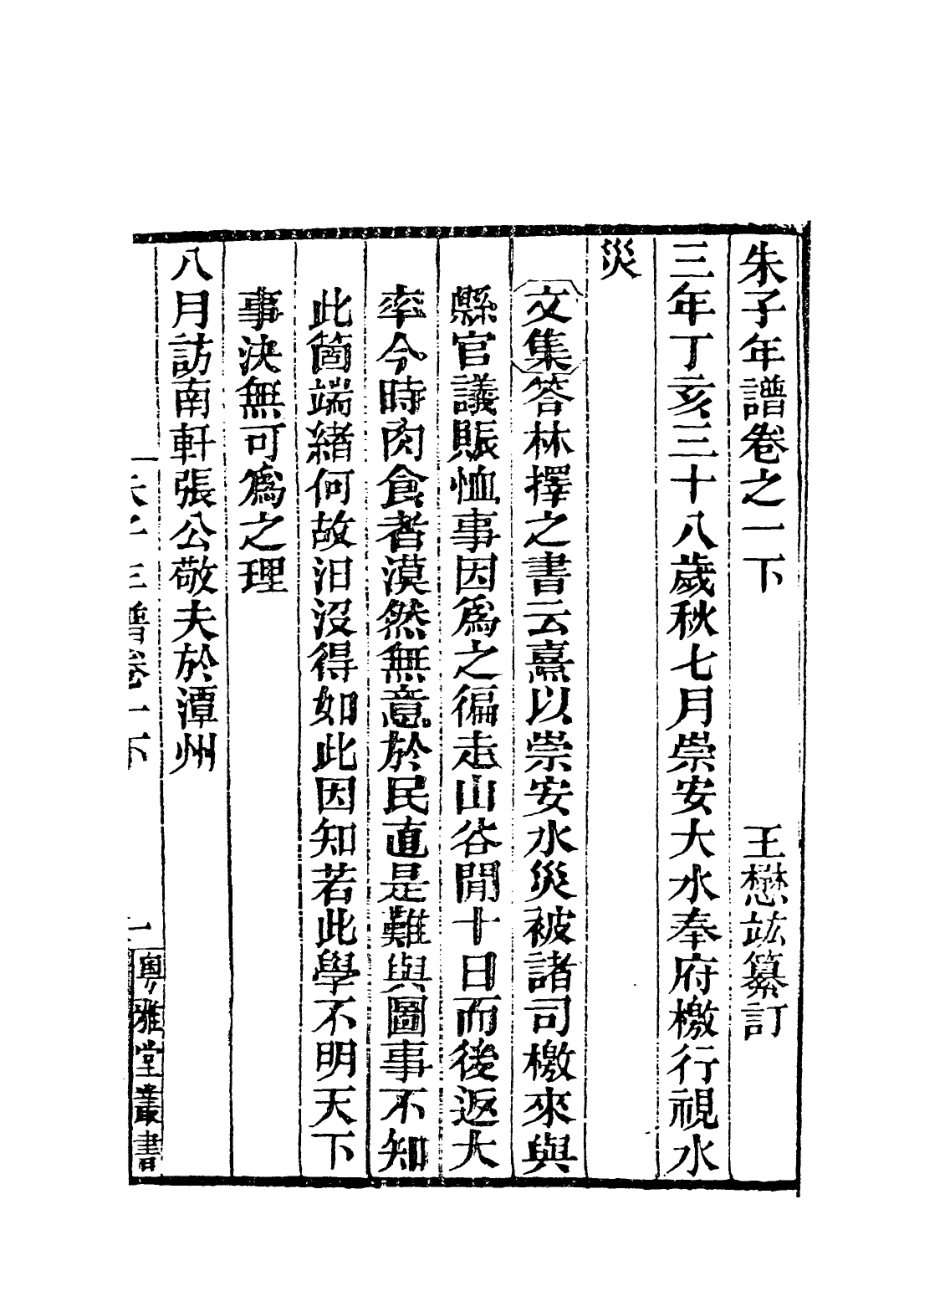 朱子年譜卷之一下
王懋竑纂訂
三年丁亥三十八歲秋七月崇安大水奉府檄行視水
災
文集答林擇之書云熹以崇安水災被諸司檄來與
縣官議賑恤事因爲之徧走山谷閒十日而後返大
率今時肉食者漠然無意於民直是難與圖事不知
此箇端緒何故汩沒得如此因知若此學不明天下
事決無可爲之理
八月訪南軒張公敬夫於潭州
粵雅堂叢書